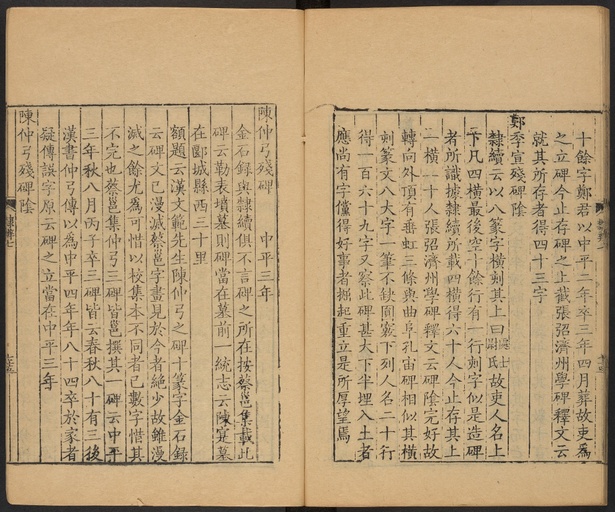 十餘字鄭君以中平二年卒三年四月葬故吏爲
之立碑今止存碑之上截張弨濟州學碑釋文云
就其所存者得四十三字
鄭季宣殘碑陰
隸續云以八篆字橫刻其上曰處士故吏人名上
下凡四橫最後空十餘行有一行刺字似是造碑
者所識據隸續所載四橫得六十人今止存其上
一橫一十人張弨濟州學碑釋文云碑陰完好故
轉向外頂有垂虹三條與曲阜孔宙碑相似其橫
刺篆文八大字一筆不缺圜竅下列人名二十行
得一百六十九字又察此碑甚大下半埋入土者
應尚有字儻得好事者掘起重立是所厚望焉
陳仲弓殘碑 中平三年
金石録與隸續俱不言碑之所在按蔡邕集載此
碑云勒表墳墓則碑當在墓前一統志云陳寔墓
在郾城縣西三十里
額題云漢文範先生陳仲弓之碑十篆字金石録
云碑文已漫滅蔡邕字畫見於今者絶少故雖漫
滅之餘尤爲可惜以校集本不同者已數字惜其
不完也蔡邕集仲弓三碑皆邕撰其一碑云中平
三年秋八月丙子卒三碑皆云春秋八十有三後
漢書仲弓傳以爲中平四年年八十四卒於家者
疑傳誤字原云碑之立當在中平三年
陳仲弓殘碑陰